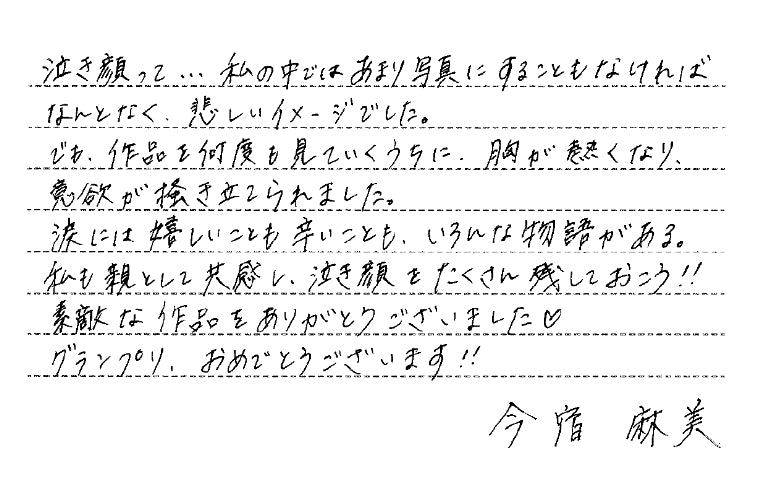 泣き顔って… 私の中ではあまり写真にすることもなければ
なんとなく、悲しいイメージでした。
でも、作品を何度も見ていくうちに、胸が熱くなり、
意欲が掻き立てられました。
涙には嬉しいことも辛いことも、いろんな物語がある。
私も親として共感し、泣き顔をたくさん残しておこう!!
素敵な作品をありがとうございました♡
グランプリ、おめでとうございます!!
今宿 麻美